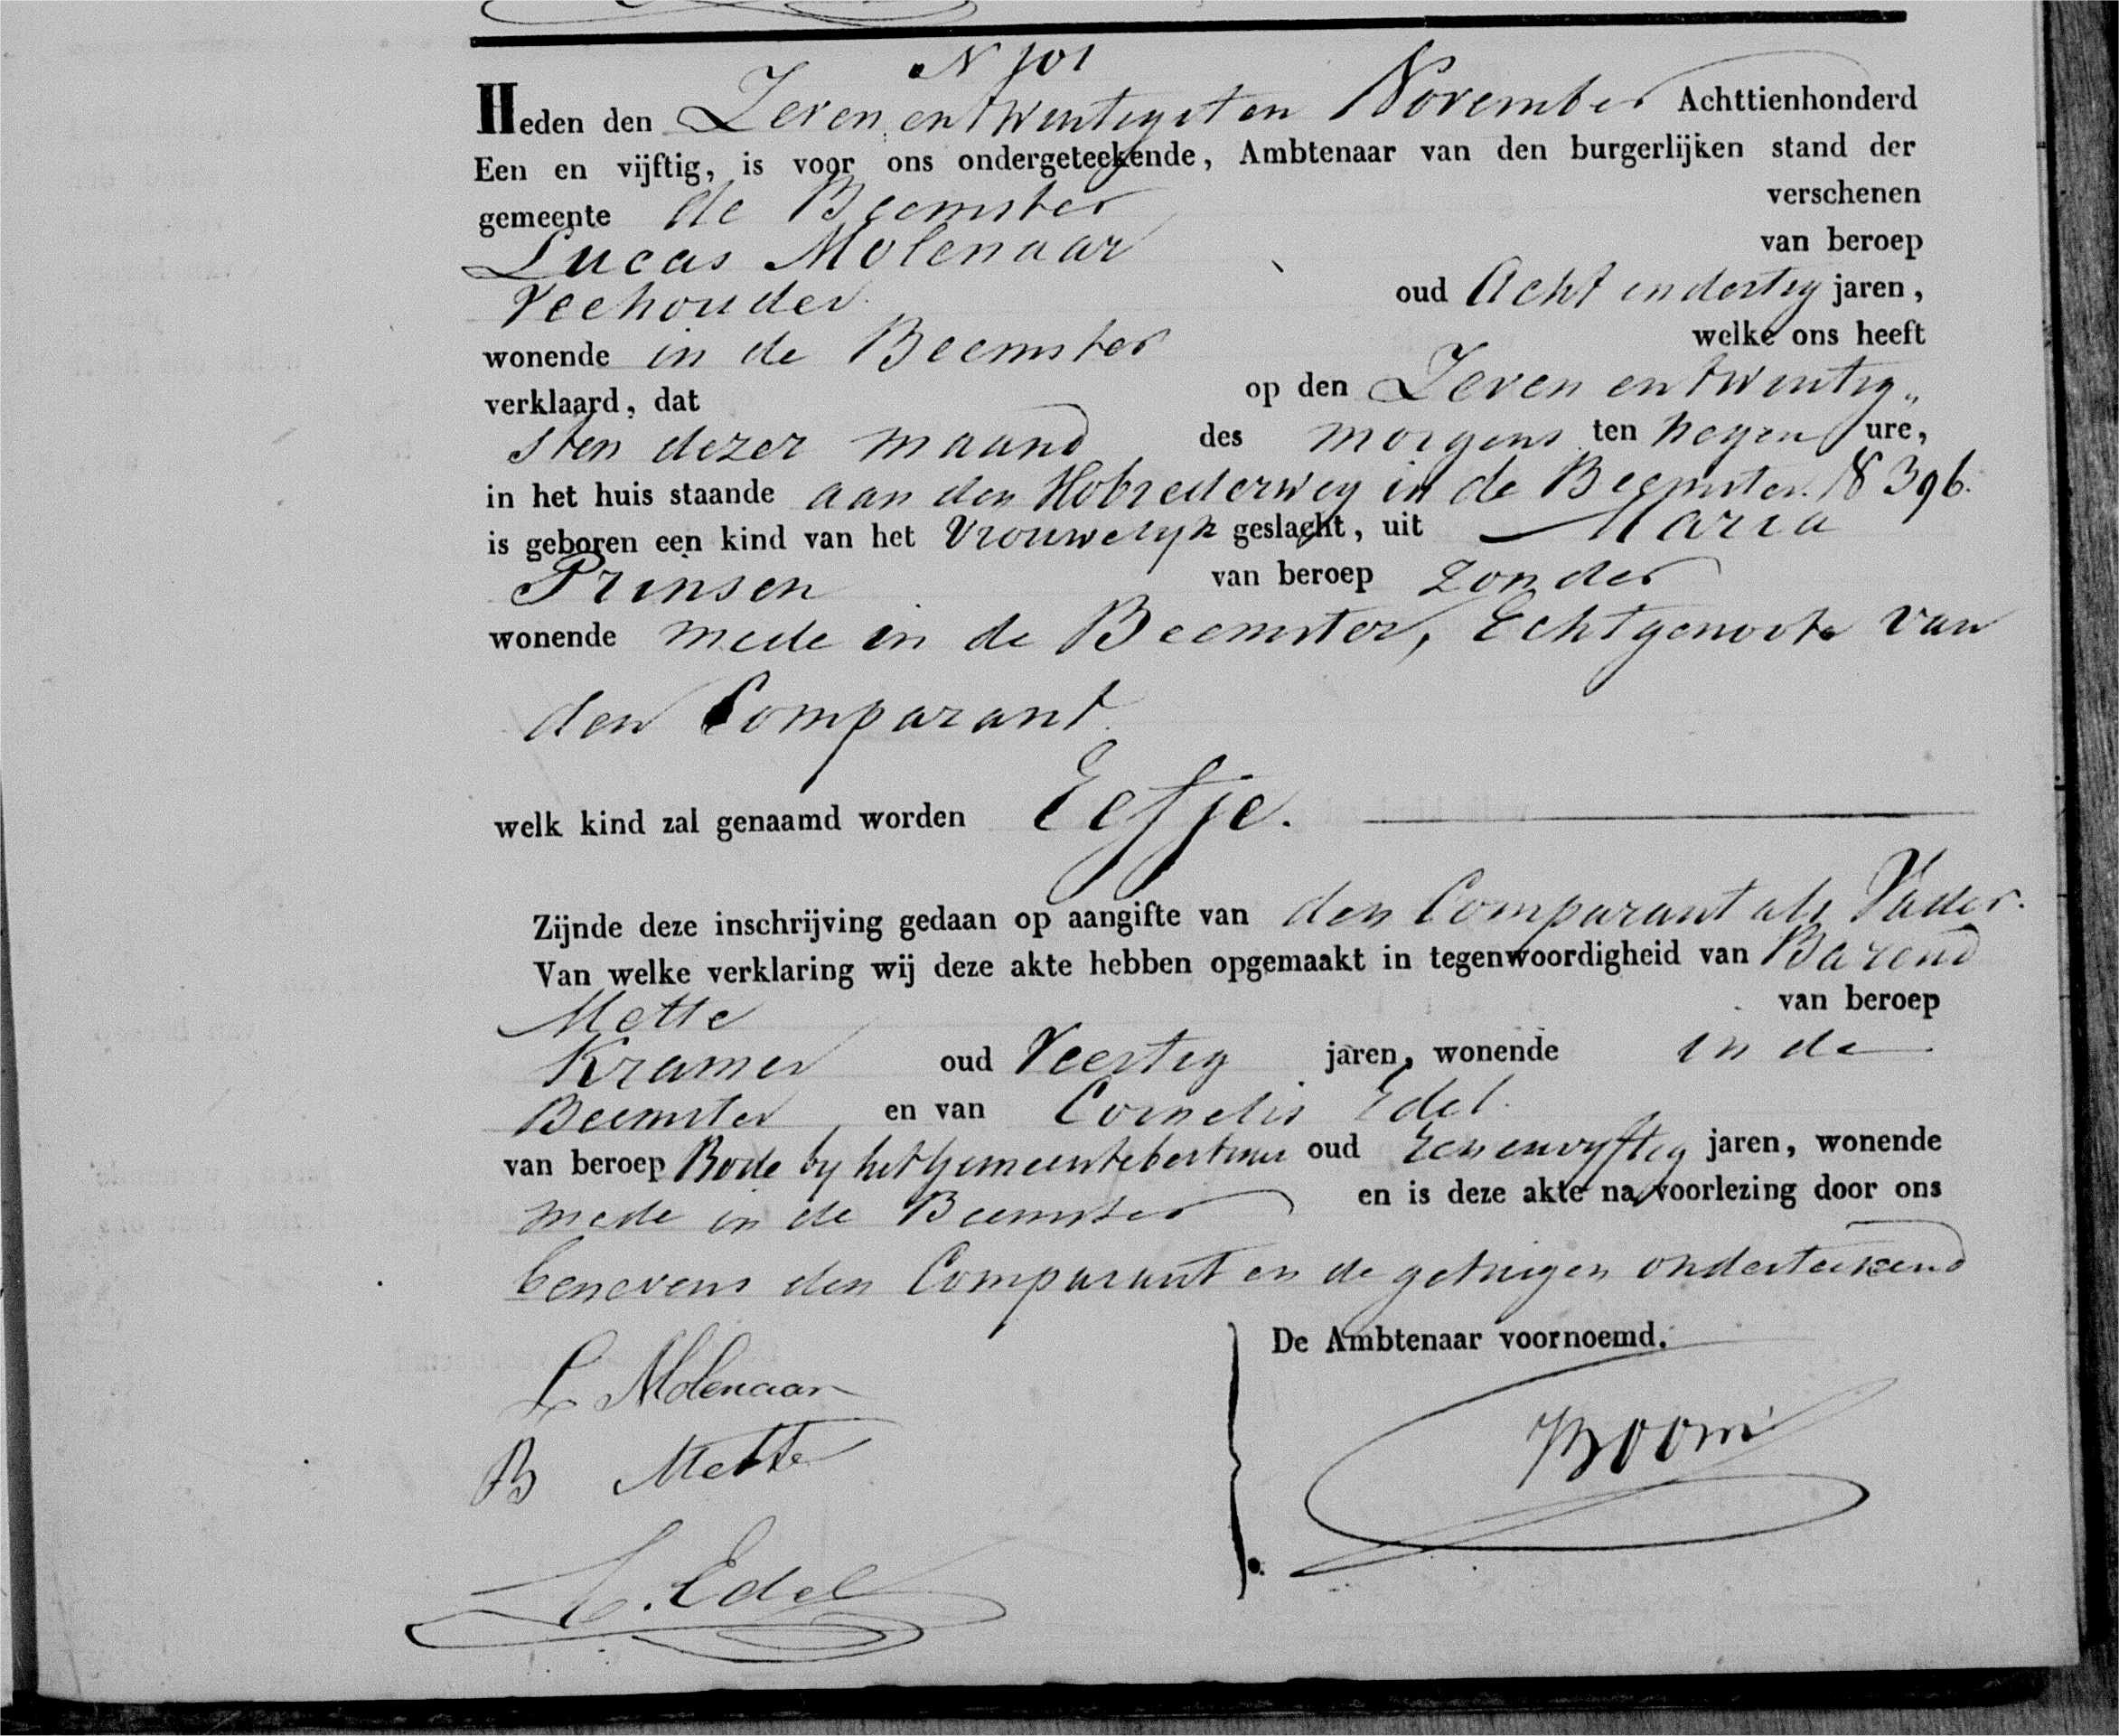 N 101
Heden den Zeven en twintigsten November Achttienhonderd
Een en vijftig, is voor ons ondergeteekende, Ambtenaar van den burgerlijken stand der
gemeente de Beemster verschenen
Lucas Molenaar van beroep
Veehouder oud Acht en dertig jaren,
wonende in de Beemster welke ons heeft
verklaard, dat op den Zeven en twintig„
sten dezer maand des morgens ten negen ure,
in het huis staande aan den Hobrederweg in de Beemster. N 396.
is geboren een kind van het Vrouwelyk geslacht, uit Maria
Prinsen van beroep zonder
wonende mede in de Beemster, Echtgenoote van
den Comparant
welk kind zal genaamd worden Eefje.
Zijnde deze inschrijving gedaan op aangifte van den Comparant als Vader.
Van welke verklaring wij deze akte hebben opgemaakt in tegenwoordigheid van Barend
Mette van beroep
Kramer oud Veertig jaren, wonende in de
Beemster, en van Cornelis Edel.
van beroep Bode by het Gemeentebestuur oud Eenenvyftig jaren, wonende
mede in de Beemster en is deze akte na voorlezing door ons
benevens den Comparant en de getuigen onderteekend
De Ambtenaar voornoemd.
L Molenaar
B Mette
Boom
C. Edel